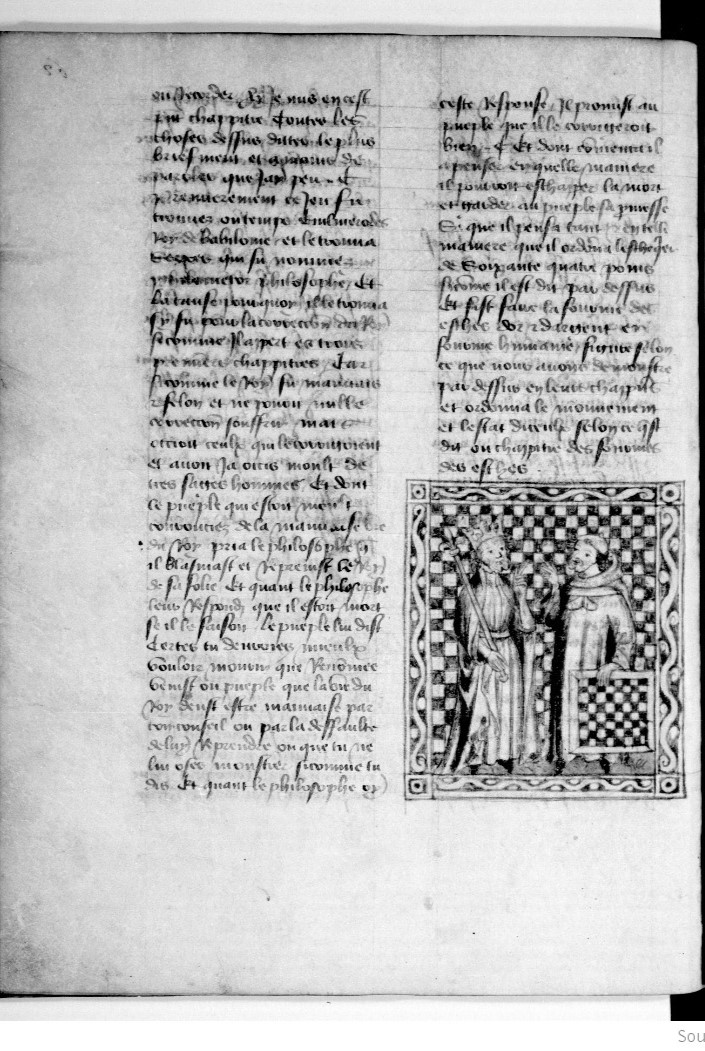 ou recorder Et je mis en cest
pñt chappitre Toutes les
choses dessus dites le plus
briefment et a moins de
paroles que Jay peu
premierement ce Jeu fu
trouuez ou temps
Roy de Babilonie et le trouua
Serpes qui fu nomme
philosophe Et
la cause pourquoy il le trouua
sy fu pour la correccion du Roy
si comme Il appert es trois
premiers chappitres Car
si comme le Roy fu mauuais
felon et ne pouoit nulle
correccion souffrir mais
occioit ceulx qui le corrigoient
et auoit Ja occis moult de
tres sages hommes Et dont
le pueple qui estoit moult
courouciez de la mauuaise vie
du Roy pria le philosophe qͥ
il blasmast et repreinst le Roy
de sa folie Et quant le philosophe
leur Respondi que il estoit mort
se il le faisoit le pueple lui dist
Certes tu deuroies mieulx
vouloir mourir que Renomee
venist ou pueple que la vie du
Roy deust estre mauuaise par
ton conseil ou par la deffaulte
de luy Reprendre ou que tu ne
lui oses monstrer si comme tu
dis Et quant le philosophe oy
ceste Response Il promist au
pueple que il le corrigeroit
bien Et dont comenca il
a penser en quelle maniere
il pourroit eschapper la mort
et garder au pueple sa promesse
Si que il pensa tant en tele
maniere que il ordena leschequier
de Soixante quatre poins
si come il est dit par dessus
Et fist faire la fourme des
esches dor et dargent en
fourme humaine
ce que nous auons demonstre
par dessus en leurs chappitres
et ordonna le mouuement
et lestat diceulx selon ce qͥl est
dit ou chappitre des fourmes
des esches
Sou